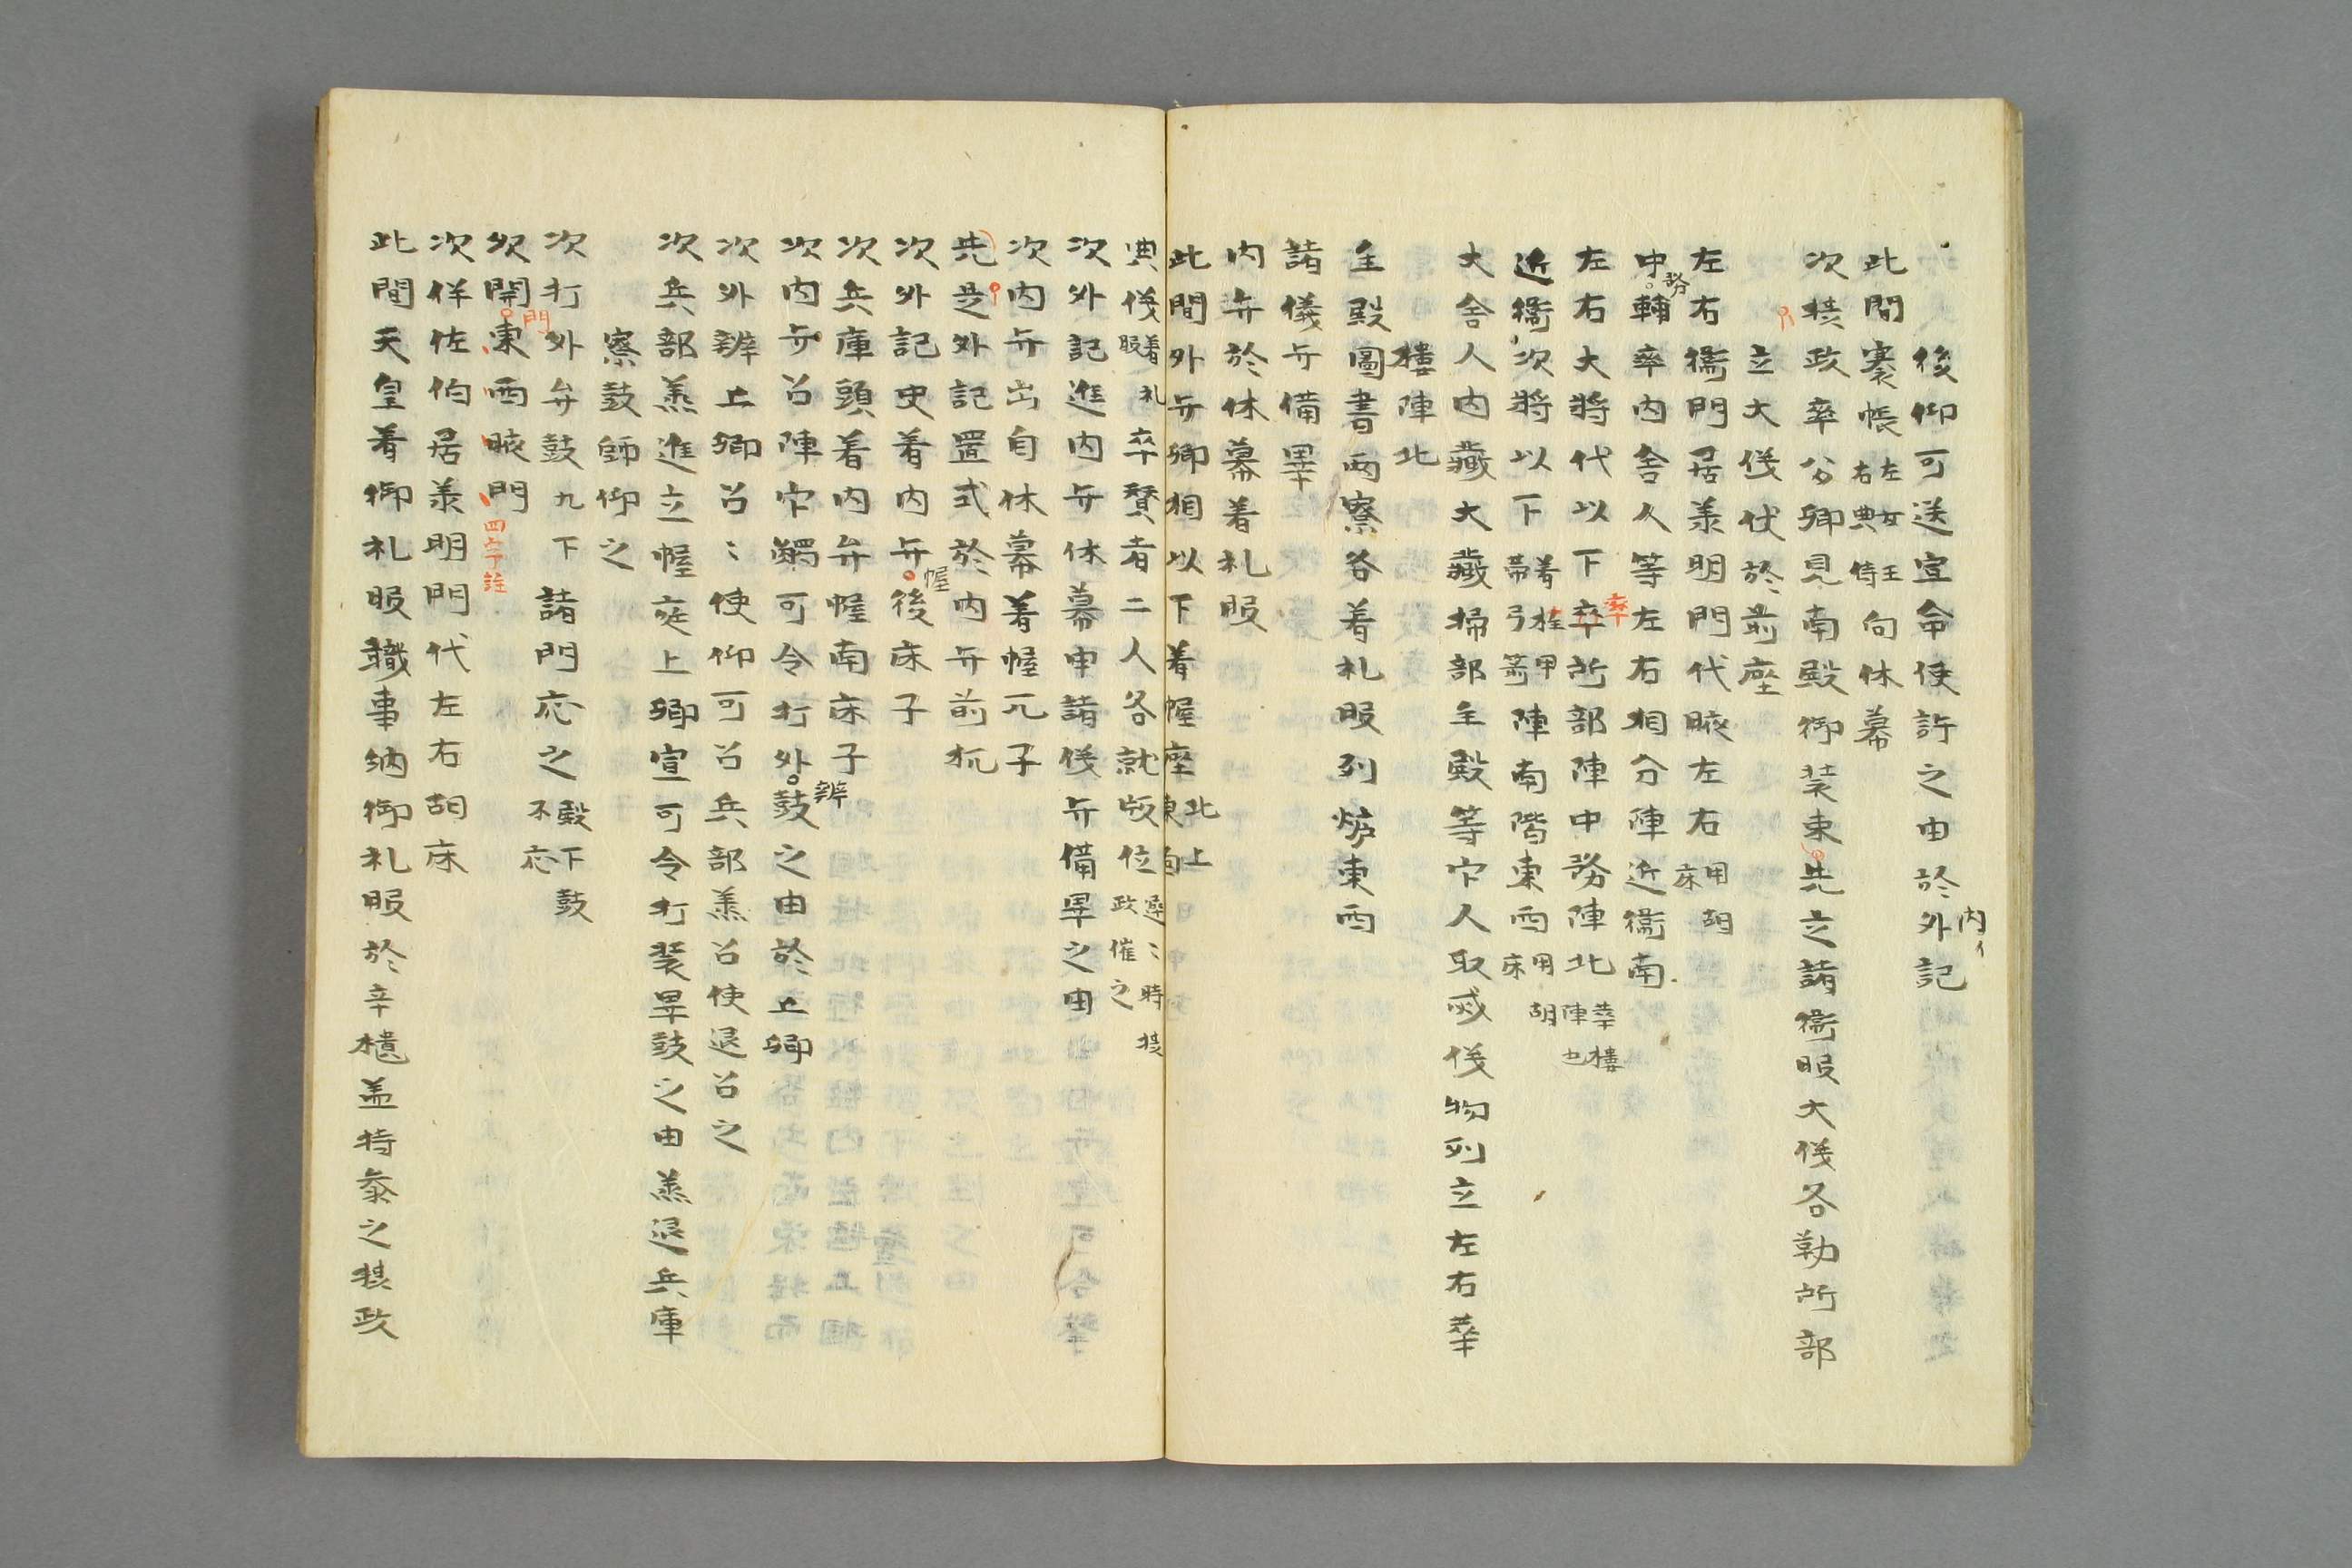 後仰可送宣命使許之由於外記
内イ
此間褰帳左女王右典侍向休幕
次摂政率公卿見南殿御装束先之諸衛服大儀各勒所部
立大儀仗於前座
左右衛門居兼明門代腋左右用胡床
中務輔率内舎人等左右相分陣近衛南
左右大将代以下率所部陣中務陣北華楼陣也
率
近衛次将以下着桂甲帯弓箭陣南階東西用胡床
大舎人内蔵大蔵掃部主殿等官人取威儀物列立左右華
楼陣北
主殿圖書両寮各着礼服列炉東西
諸儀弁備畢
内弁於休幕着礼服
此間外弁卿相以下着幄座北上東面
典儀着礼服率賛者二人各就版位遅々時摂政催之
次外記進内弁休幕申諸儀弁備畢之由
次内弁出自休幕着幄兀子
先是外記置式於内弁前机
次外記史着内弁幄後床子
次兵庫頭着内弁幄南床子
次内弁召陣官觸可令打外辨鼓之由於上卿
次外辨上卿召々使仰可召兵部丞召使退召之
次兵部丞進立幄庭上卿宣可令打装畢鼓之由丞退兵庫
寮鼓師仰之
次打外弁鼓九下諸門応之殿下鼓不応
次開門東西腋門
次伴佐伯居兼明門代左右胡床
此間天皇着御礼服職事納御礼服於辛櫃盖持参之摂政